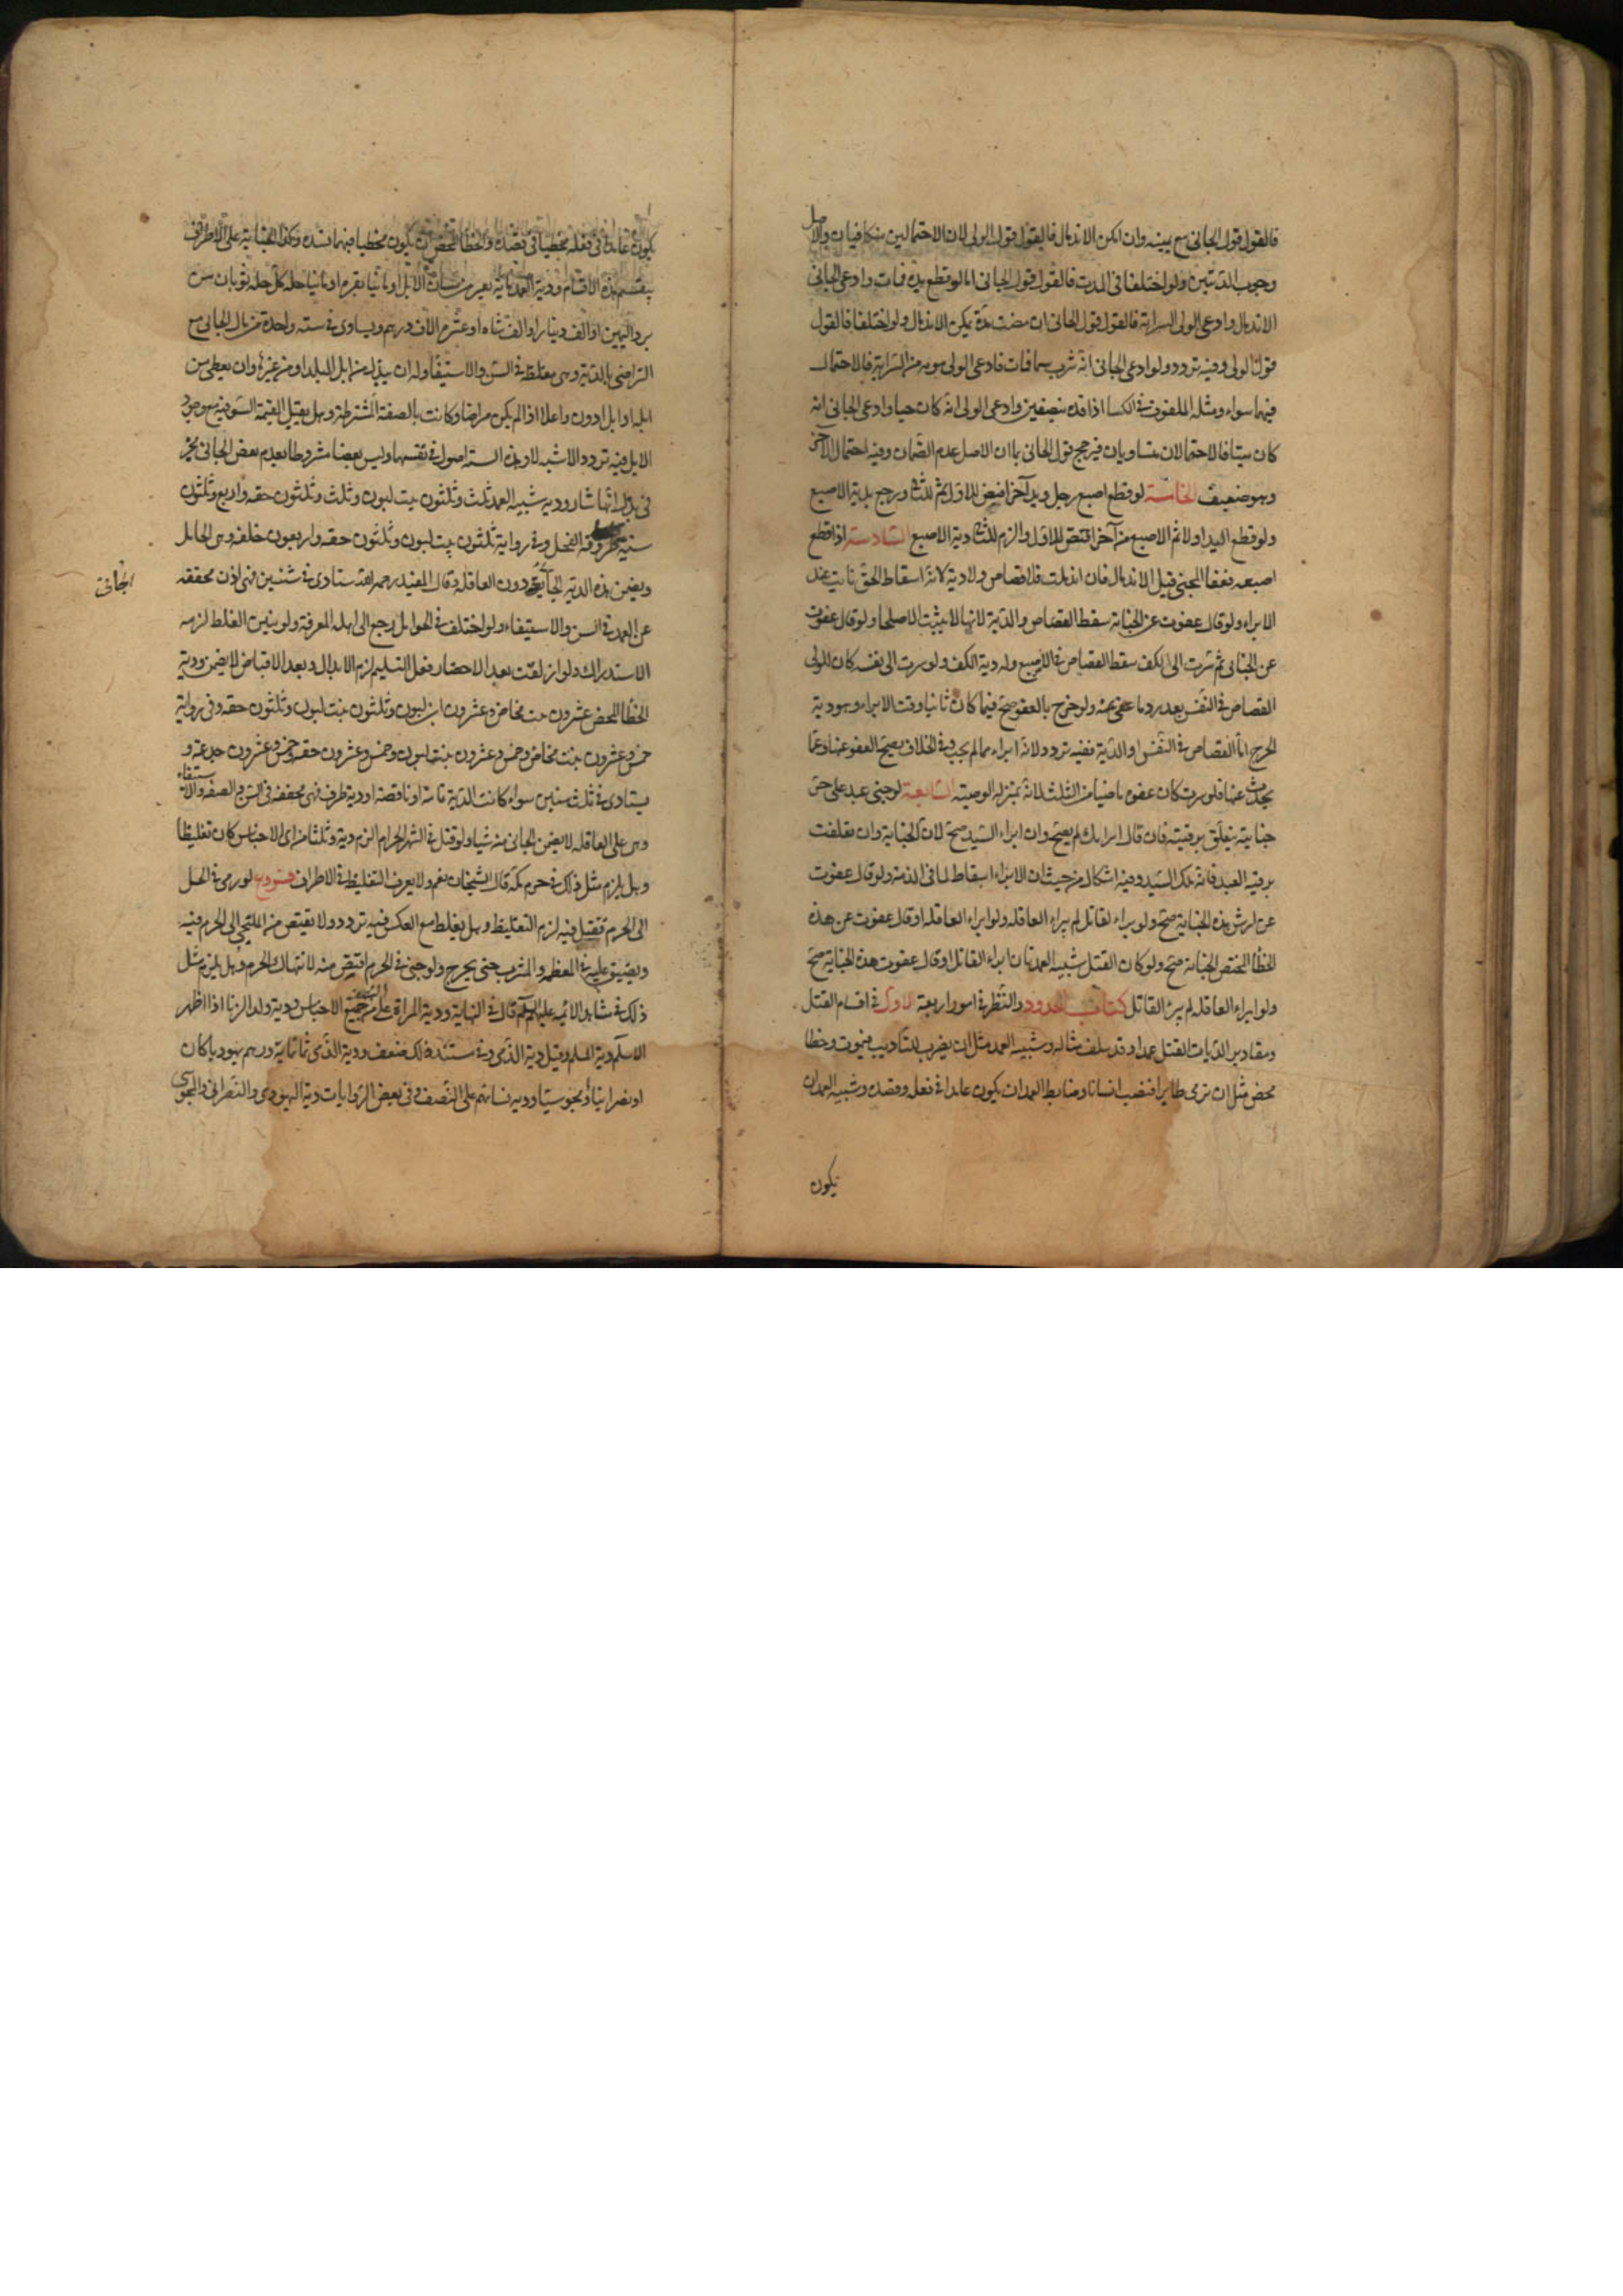 فالقول قول الجانى مع يمينه وان امكن الاندمال فالقول قول الولى لان الاحتمالين متكافيان والاصل
وجوب الديتين ولو اختلفا فى المدت فالقول قول الجانى اما لو قطع يده فمات وادعى الجانى
الاندمال وادعى الولى السراية فالقول قول الجانى ان مضت مدة يمكن الاندمال ولو اختلفا فالقول
قول الولى وفيه تردد ولو ادعى الجانى انه شرب سما فمات فادعى الولى موته من السراية فالاحتمال
فيهما سواء ومثله الملفوف فى الكسا اذا قده بنصفين وادعى الولى انه كان حيا وادعى الجانى انه
كان ميتا فالاحتمالان متساويان فيرجح قول الجانى بما ان الاصل عدم الضمان وفيه احتمال آخر
وهو ضعيف الخامسة لو قطع اصبع رجل ويد آخر اقتص للاول ثم للثانى ورجع بدية الاصبع
ولو قطع اليد اولا ثم الاصبع من آخر اقتص للاول والزم للثانى دية الاصبع السادسة اذا قطع
اصبعه فعفا المجنى قبل الاندمال فان اندملت فلا قصاص ولا دية لانه اسقاط لحق ثابت عند
الابراء ولو قال عفوت عن الجناية سقط القصاص والدية لانها لا يثبت الا صلحا ولو قال عفوت
عن الجناية ثم سرت الى الكف سقط القصاص فى الاصبع وله دية الكف ولو سرت الى نفسه كان للولى
القصاص فى النفس بعد رد ما عفى عنه ولو صرح بالعفو صح فيما كان ثابتا وقت الابراء وهو دية
الجرح اما القصاص فى النفس او الدية ففيه تردد لانه ابراء مما لم يجب وفى الخلاف يصح العفو عنها وعما
يحدث عنها فلو سرت كان عفوه ماضيا من الثلث لانه بمنزله الوصيته السابعة لو جنى عبد على حر
جناية يتعلق برقبته فان قال ابراتك لم يصح وان ابراء السيد صح لان الجناية وان تعلقت
برقبه العبد فانه ملك السيد وفيه اشكال من حيث ان الابراء اسقاط لما فى الذمة ولو قال عفوت
عن ارش هذه الجناية صح ولو ابراء القاتل لم يبراء العاقله ولو ابراء العاقله او قال عفوت عن هذه
الخطا المختص الجناية صح ولو كان القتل شبيه العمد فان ابراء القاتل او قال عفوت هذه الجناية صح
ولو ابراء العاقله لم يبرئ القاتل كتاب الحدود والنظر فى امور اربعة الاول فى اقسام القتل
ومقادير الديات القتل عمدا وقد سلف مثاله وشبيه العمد مثل ان يضرب للتاديب فيموت وخطا
محض مثل ان ترمى طايرا فتصيب انسانا وضابط العمد ان يكون عامدا فى فعله وقصده وشبيه العمد ان
يكون
يكون عامدا فى فعله مخطيا فى قصده والخطا المحض ان يكون مخطيا فيهما وكذا الجناية على الاطراف
ينقسم هذه الاقسام ودية العمد ماية بعير من مسان الابل او ماتا بقرة او ماتيا حله كل حله ثوبان من
برد اليمن او الف دينار او الف شاه او عشرة الاف درهم ويستادى فى سنه واحدة من مال الجانى مع
التراضى بالدية وهى مغلظة فى السن والاستيفا وله ان يبذل من ابل البلد او من غيره وان يعطى من
ابله او ابل ادون واعلا اذا لم يكن مراضا وكانت بالصفة المشترطة وهل يقبل القيمة السوقيه مع وجود
الابل فيه تردد الاشبه لا وهذه الستة اصول فى نفسها وليس بعضها مشروطا بعدم بعض الجانى مخير
فى بذل ايها شاء ودية شبيه العمد ثلث وثلثون بنت لبون وثلث وثلثون حقه واربع وثلثون
ثنية طروقه الفحل وفى رواية ثلثون بنت لبون وثلثون حقه واربعون خلفه وهى الحامل
ويضمن هذه الدية الجانى دون العاقله وقال المفيد رحمه الله ستادى فى سنتين فهى اذن مخففه
عن العمد فى السن والاستيفاء ولو اختلف فى الحوامل رجع الى اهل المعرفة ولو تبين الغلط لزمه
الاستدراك ولو ازلقت بعد الاحضار قبل التسليم لزم الابدال وبعد الاقباض لا يضمن ودية
الخطا المحض عشرون بنت مخاض وعشرون ابن لبون وثلثون بنت لبون وثلثون حقه وفى رواية
خمس وعشرون بنت مخاض وخمس وعشرون بنت لبون وخمس وعشرون حقه وخمس وعشرون جذعة و
يستادى فى ثلث سنين سواء كانت الدية تامة او ناقصة او دية طرف فهى مخففه فى السن والصفه والاستيفاء
وهى على العاقله لا يضمن الجانى منه شيا ولو قتل فى الشهر الحرام الزم دية وثلثا من اى الاجناس كان تغليظا
وهل يلزم مثل ذلك فى حرم مكة قال الشيخان نعم ولا يعرف التغليظ فى الاطراف فروع لو رمى فى الحل
الى الحرم فقتل فيه لزم التغليظ وهل يغلظ مع العكس فيه تردد ولا يقتص من الملتجى الى الحرم فيه
ويضيق عليه فى المطعم والمشرب حتى يخرج ولو جنى فى الحرم اقتص منه لانتهاك الحرم وهل يلزم مثل
ذلك فى مشاهد الائمه عليهم السلم قال فى النهاية ودية المراة على النصف من جميع الاجناس ودية ولد الزنا اذا اظهر
الاسلم دية المسلم وقيل دية الذمى وفى مستند ذلك ضعف ودية الذمى ثمانماية درهم يهوديا كان
او نصرانيا او مجوسيا ودية نسائهم على النصف وفى بعض الروايات دية اليهودى والنصرانى والمجوسى